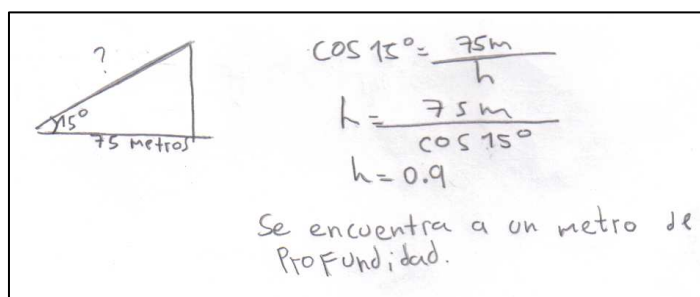 ?
15°
75 metros
cos 15° = 75m / h
h = 75m / cos 15°
h = 0.9
Se encuentra a un metro de
Profundidad.